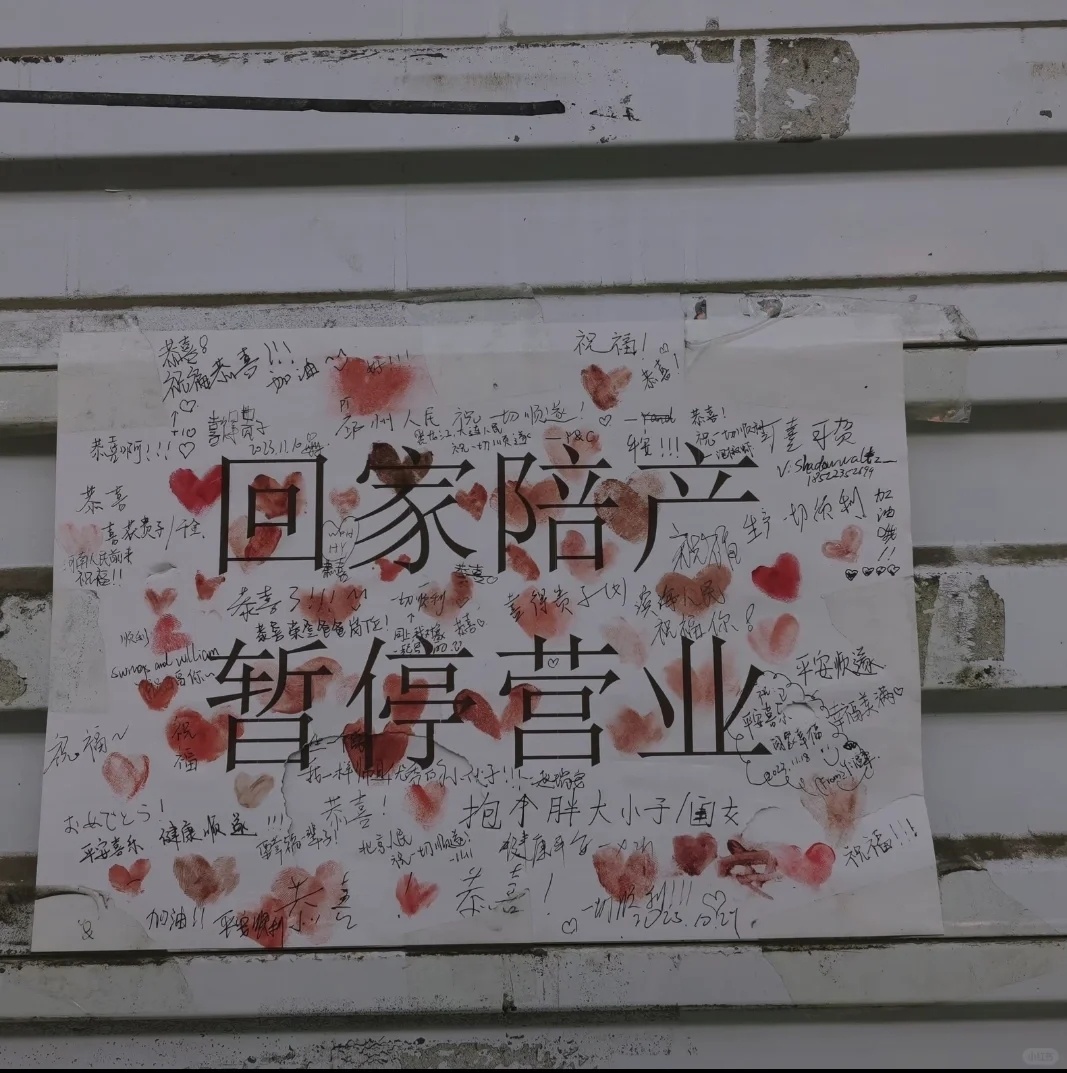 恭喜
祝福恭喜!!!
加油
好!!!
祝福!
恭喜!
邳州人民 祝一切顺遂!
黑龙江,大连人民
祝一切顺遂
P&C
恭喜!
祝一切顺利
可喜可贺
恭喜啊!!!
+10
喜得贵子
2023.11.10
回家陪产
恭喜
喜获贵子/千金
河南人民前来
祝福!!
生产一切顺利
加油哦!!
恭喜
恭喜
恭喜了!!!
一切顺利
喜得贵子
滨海人民
祝福你
恭喜
顺利
暂停营业
平安顺遂
平安喜乐
阖家幸福
幸福美满
2023.11.18
祝福~
祝福
おめでとう!
平安喜乐
健康顺遂!!!
恭喜!
抱个胖大小子/闺女
北京人民
祝一切顺遂!
11.11
健康平安
祝福!!!
加油!!
平安顺利
恭喜
恭喜!
一切顺利!!!
2023.10.27